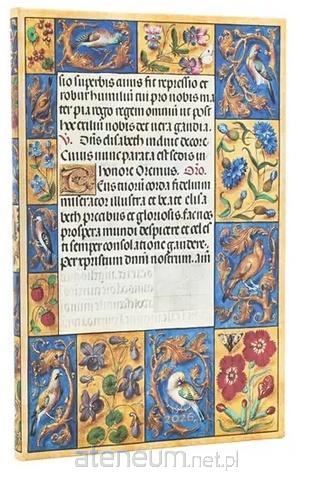 sio superbis anus fit repressio et
robur humiliū cui pro nobis ma
ter pia rego regem omniū ut post
hoc exiliū nobis det vera gaudia.
V. Dūs elisabeth induit decore.
Cuius nunc parata est sedis in
honore Oremus. Oro.
Tuorū corda fidelium
miserator illustra et beate elisa
beth precibus et gloriosis fac nos
prospera mundi despicere et celes
ti semper consolatione gaudere.
Per xpistum dnm nostrum. am
2026
ateneum.net.pl